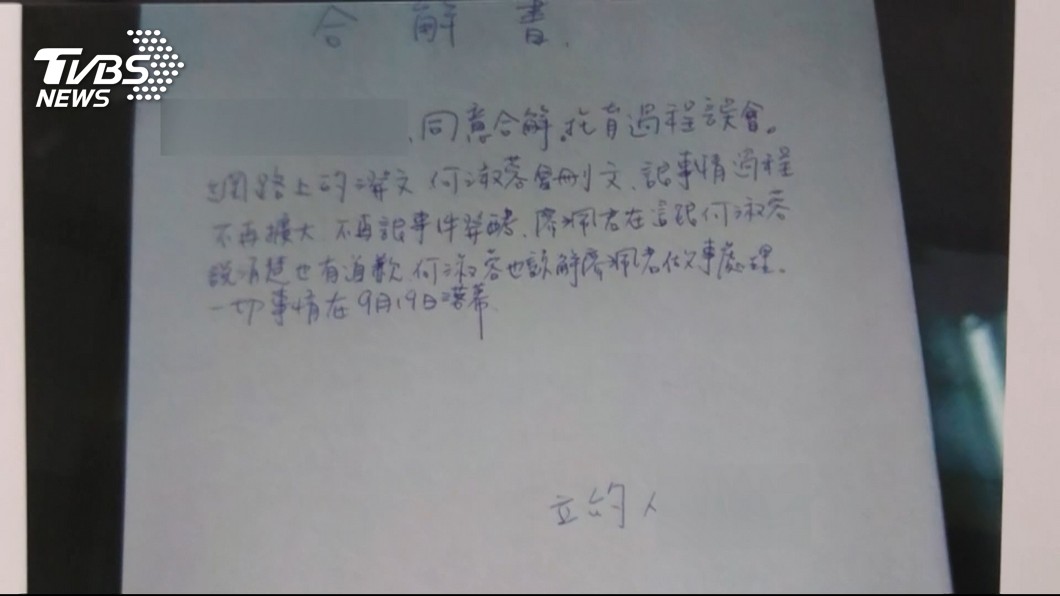 TVBS
NEWS
合解書.
、同意合解.托育過程誤會。
網路上的 文 何淑蓉會刪文、記事情過程
不再擴大.不再記事件發酵.廖珮君在這跟何淑蓉
說清楚也有道歉.何淑蓉也諒解廖珮君做事處理。
一切事情在9月19日落幕.
立約人